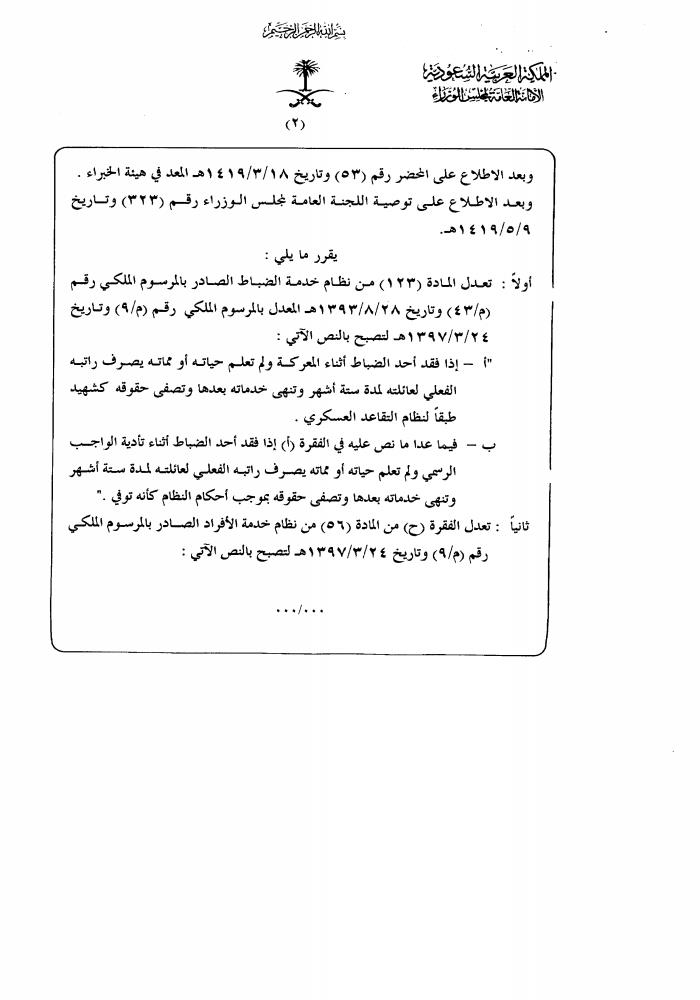 بسم الله الرحمن الرحيم
المملكة العربية السعودية
الأمانة العامة لمجلس الوزراء
(٢)
وبعد الاطلاع على المحضر رقم (٥٣) وتاريخ ١٤١٩/٣/١٨هـ المعد في هيئة الخبراء .
وبعد الاطلاع على توصية اللجنة العامة لمجلس الوزراء رقم (٣٢٣) وتاريخ
١٤١٩/٥/٩هـ.
يقرر ما يلي :
أولاً : تعدل المادة (١٢٣) من نظام خدمة الضباط الصادر بالمرسوم الملكي رقم
(م/٤٣) وتاريخ ١٣٩٣/٨/٢٨هـ المعدل بالمرسوم الملكي رقم (م/٩) وتاريخ
١٣٩٧/٣/٢٤هـ لتصبح بالنص الآتي :
"أ – إذا فقد أحد الضباط أثناء المعركة ولم تعلم حياته أو مماته يصرف راتبه
الفعلي لعائلته لمدة ستة أشهر وتنهى خدماته بعدها وتصفى حقوقه كشهيد
طبقاً لنظام التقاعد العسكري .
ب – فيما عدا ما نص عليه في الفقرة (أ) إذا فقد أحد الضباط أثناء تأدية الواجب
الرسمي ولم تعلم حياته أو مماته يصرف راتبه الفعلي لعائلته لمدة ستة أشهر
وتنهى خدماته بعدها وتصفى حقوقه بموجب أحكام النظام كأنه توفي ."
ثانياً : تعدل الفقرة (ح) من المادة (٥٦) من نظام خدمة الأفراد الصادر بالمرسوم الملكي
رقم (م/٩) وتاريخ ١٣٩٧/٣/٢٤هـ لتصبح بالنص الآتي :
٠٠٠/٠٠٠